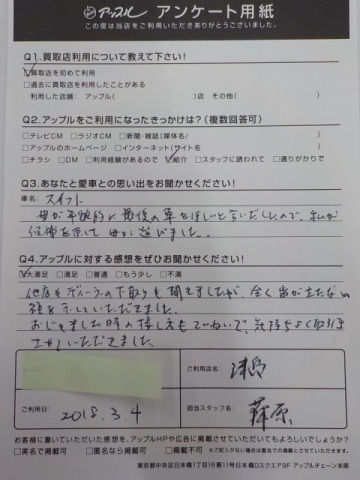 アップル アンケート用紙
この度は当店をご利用いただきありがとうございました。
Q1.買取店利用について教えて下さい!
☑買取店を初めて利用
□過去に買取店を利用したことがある
利用した店舗: アップル( )店 その他( )
Q2.アップルをご利用になったきっかけは?(複数回答可)
□テレビCM □ラジオCM □新聞・雑誌(媒体名/ )
□アップルのホームページ □インターネット(サイト名 )
□チラシ □DM □利用経験があるので ☑紹介 □スタッフに誘われて □通りがかりで
Q3.あなたと愛車との思い出をお聞かせください!
車名: スイフト
母が年齢的に最後の車をほしいと言いだしたので、私が
候補を示して母が選びました。
Q4.アップルに対する感想をぜひお聞かせください!
☑大満足 □満足 □普通 □もう少し □不満
他店やディーラーの下取りも聞きましたが、全く出が立たない
額を示していただきました。
おじゃました時の接し方もていねいで、気持ちよく取引
させていただきました。
ご利用店名: 津島
ご利用日: 2018.3.4
担当スタッフ名: 篠原
お客様に書いていただいた感想を、アップルHPや広告に掲載させていただいてもよろしいでしょうか?
□実名で掲載可 □匿名なら掲載可 □掲載不可 ※ご記入がない場合は匿名での掲載とさせていただきます。
東京都中央区日本橋1丁目16番11号日本橋Dスクエア9F アップルチェーン本部